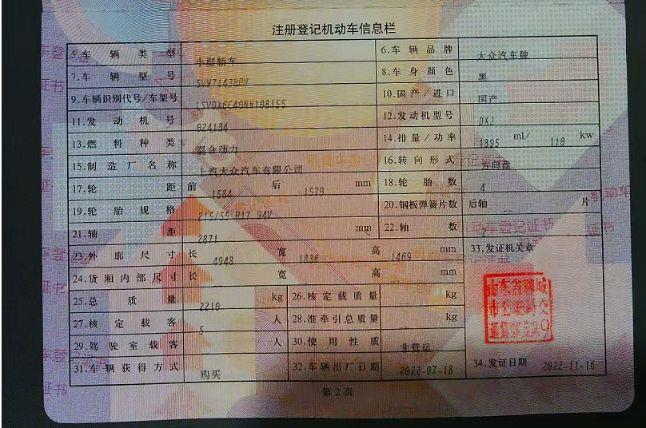 注册登记机动车信息栏
5.车辆类型 小型轿车 6.车辆品牌 大众汽车牌
7.车辆型号 8.车身颜色 黑
9.车辆识别代号/车架号 10.国产/进口 国产
11.发动机号 824134 12.发动机型号 DXJ
13.燃料种类 混合动力 14.排量/功率 1395 ml/ 110 kw
15.制造厂名称 上汽大众汽车有限公司 16.转向形式 方向盘
17.轮距 前 1584 后 1570 mm 18.轮胎数 4
19.轮胎规格 215/55 R17 94V 20.钢板弹簧片数 后轴 片
21.轴距 2871 mm 22.轴数
23.外廓尺寸 长 4948 宽 1836 高 1469 mm 33.发证机关章
24.货厢内部尺寸 长 宽 高 mm
25.总质量 2210 kg 26.核定载质量 kg
27.核定载客 5 人 28.准牵引总质量 kg
29.驾驶室载客 人 30.使用性质 非营运
31.车辆获得方式 购买 32.车辆出厂日期 2022-07-18 34.发证日期 2022-11-16
第2页